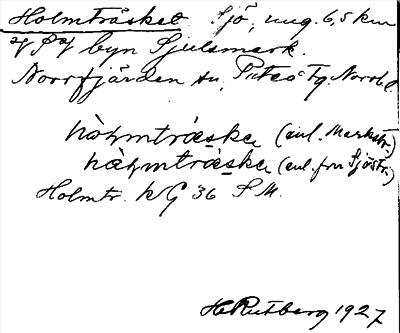 Holmträsket Sjö, ung. 6,5 km
byn Sjulsmark.
Norrfjärden sn, Piteå Tg. Norrb. l.
hòlmtràske (enl. Markstr.)
hàlmtràske (enl. frn Sjöstr.)
Holmtr. KG 36 SM.
H Rutberg 1927